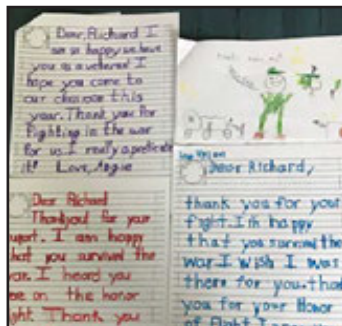 Dear, Richard I
am so happy we have
you as a veteran! I
hope you come to
our classroom this
year. Thank you for
fighting in the war
for us. I really apreticate
it! Love, Angie
Dear Richard
Thankyou for your
suport. I am happy
that you survived the
war. I heard you
were on the honor
flight. Thank you
Dear Richard,
thank you for your
fight. I'm happy
that you survived the
war I wish I was
there for you. that
you for your Honor
of flight I